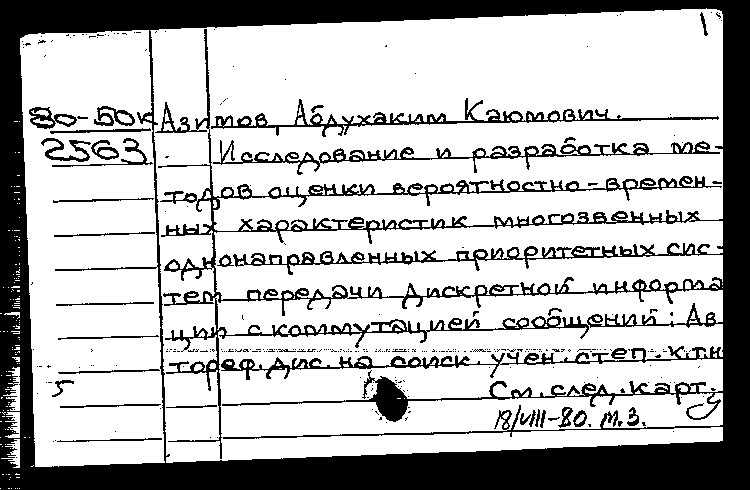 1
80-50к Азимов, Абдухаким Каюмович.
2563 Исследование и разработка ме-
тодов оценки вероятностно-времен-
ных характеристик многозвенных
однонаправленных приоритетных сис-
тем передачи дискретной информа
ции с коммутацией сообщений: Ав
тореф. дис. на соиск. учен. степ. к.т.н
5 См. след. карт.
18/VIII-80. м.з.